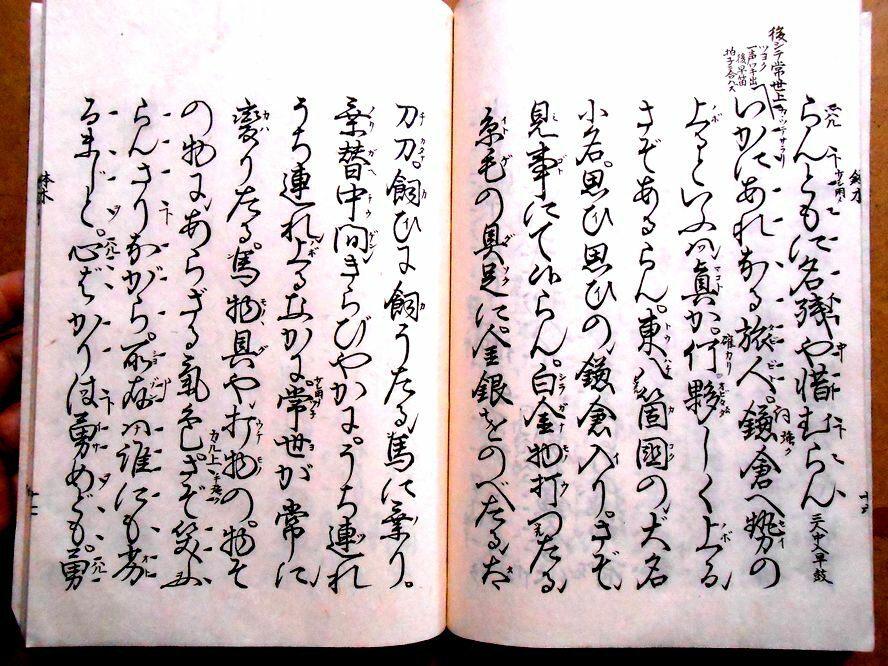 らんともに名残や惜むらん 三人中入早鼓
後シテ常世上
ツヨク
一声ワキ出
後早笛
拍子ニ合ハス
いかにあれなる旅人。鎌倉へ勢の
上るといふハ真か。何夥しく上る
さぞあるらん。東八箇国の大名
小名。思ひ思ひの鎌倉入り。さぞ
見事にて候らん。白金物打つたる
糸毛の具足に。金銀をのべたる太
刀刀。飼ひに飼うたる馬に乗り。
乗替中間きらびやかに。うち連れ
うち連れ上るなかに。常世が常に
変りたる。馬物具や打物の。物そ
の物にあらざる気色。さぞ笑ふ
らんさりながら。所存ハ誰にも劣
るまじと。心ばかりは勇めども。勇
鉢木
鉢木